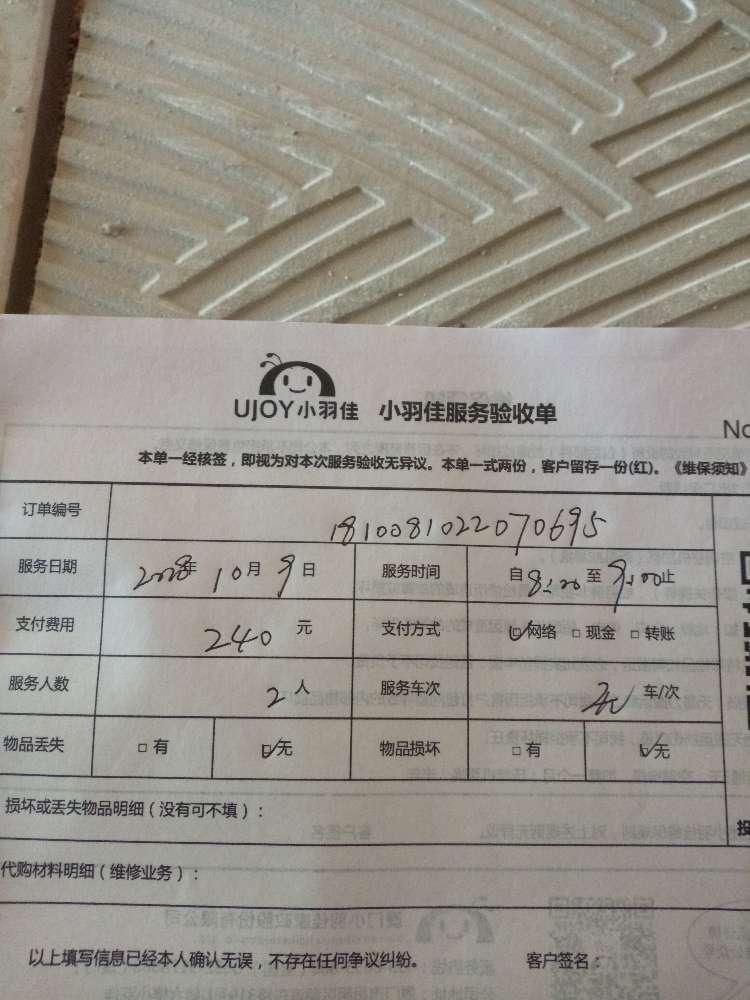 UJOY小羽佳 小羽佳服务验收单
No
本单一经核签，即视为对本次服务验收无异议。本单一式两份，客户留存一份(红)。《维保须知》
订单编号 1810081022070695
服务日期 2018年 10月 9日 服务时间 自8:00至9:00止
支付费用 240 元 支付方式 ☑网络 □现金 □转账
服务人数 2人 服务车次 无 车/次
物品丢失 □有 ☑无 物品损坏 □有 ☑无
损坏或丢失物品明细（没有可不填）：
代购材料明细（维修业务）：
以上填写信息已经本人确认无误，不存在任何争议纠纷。 客户签名：